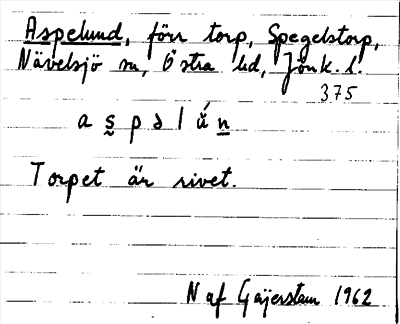 Aspelund, förr torp, Spegelstorp,
Nävelsjö sn, Östra hd, Jönk. l.
375
a s̰ p ə l ú n̲
Torpet är rivet.
N af Gajerstam 1962